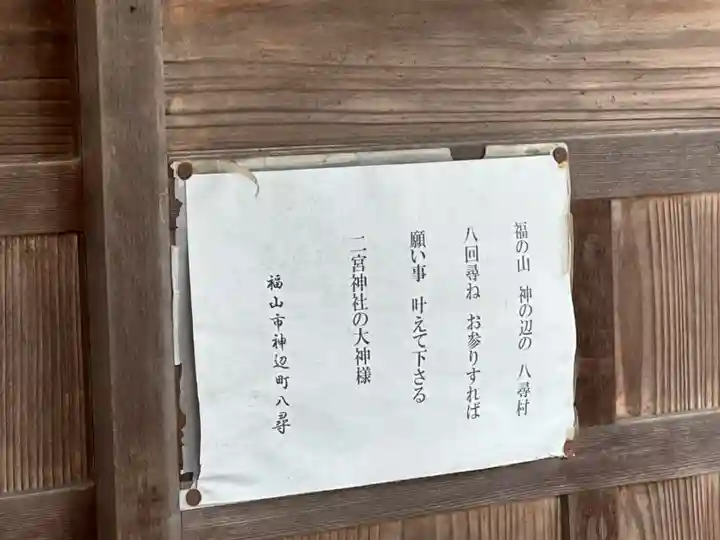 福の山　神の辺の　八尋村
八回尋ね　お参りすれば
願い事　叶えて下さる
二宮神社の大神様
福山市神辺町八尋